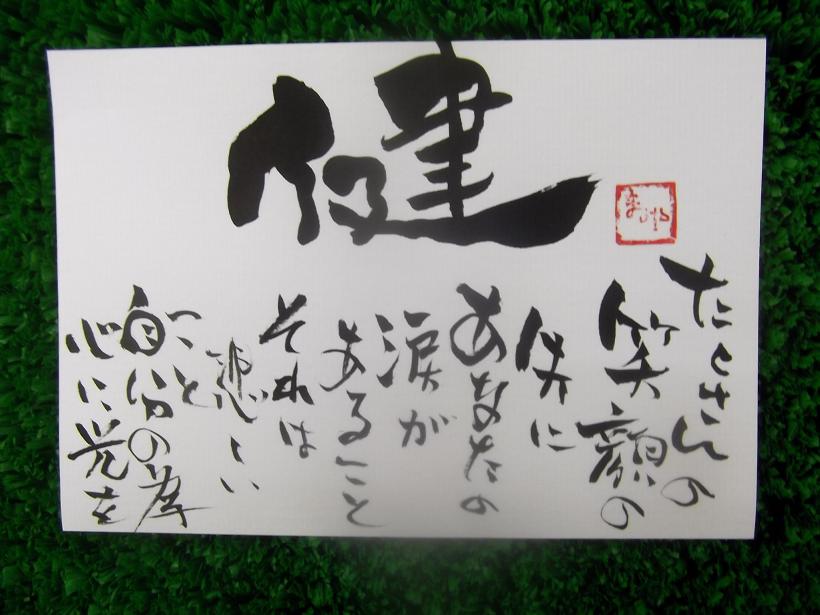 健
たくさんの
笑顔の
に
あなたの
涙が
あること
それは
悲しい
こと
自分の
心に光を